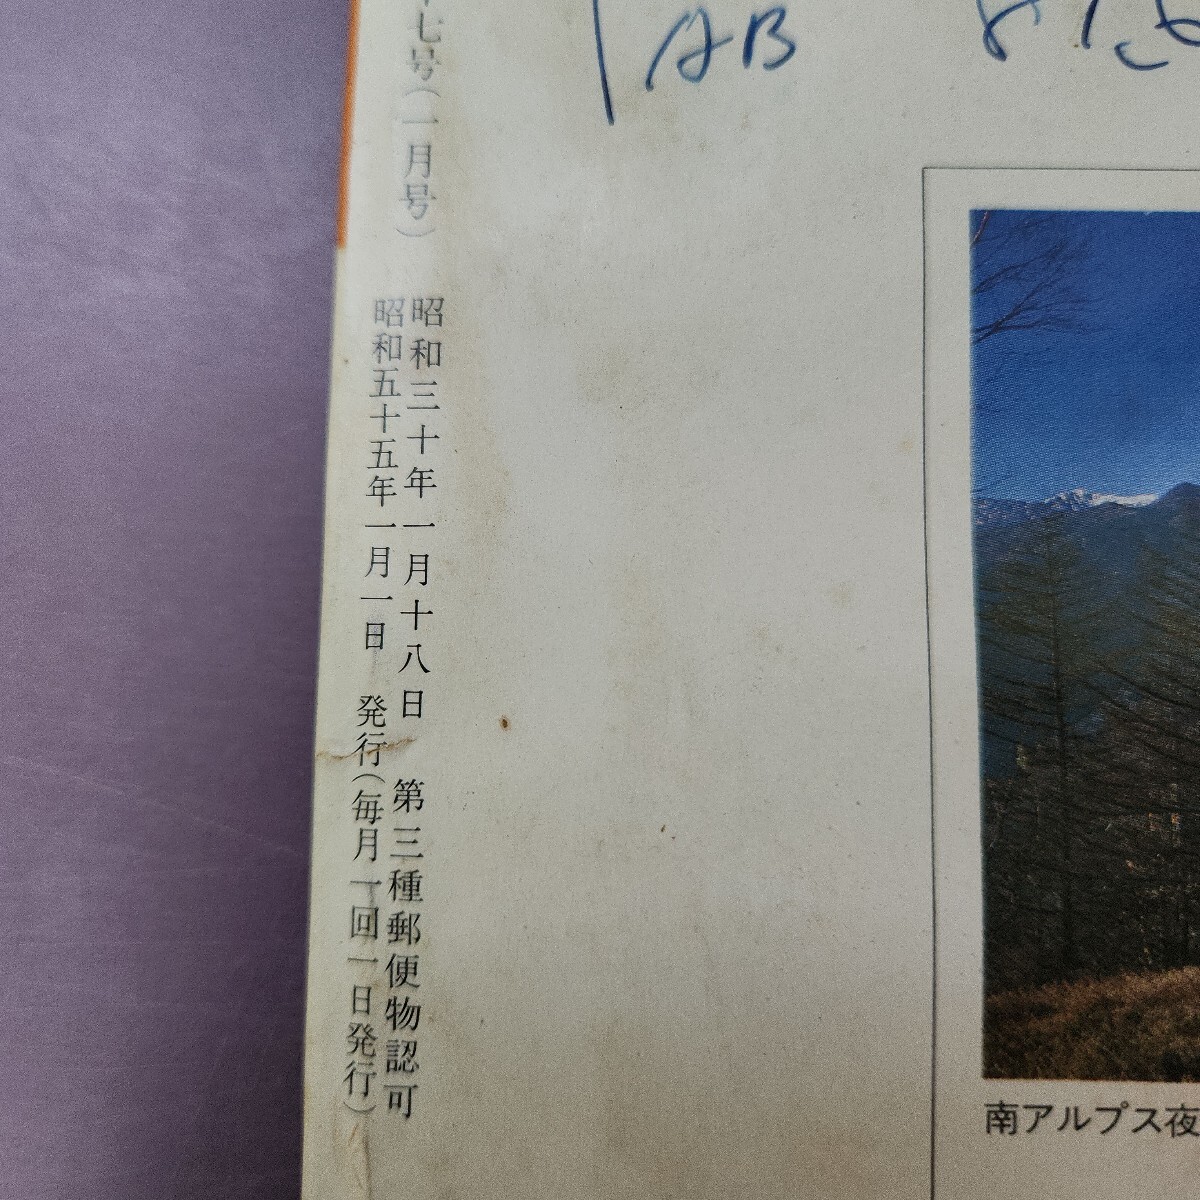 AB
昭和三十年一月十八日 第三種郵便物認可
昭和五十五年一月一日 発行(毎月一回一日発行)
七号(一月号)
南アルプス夜